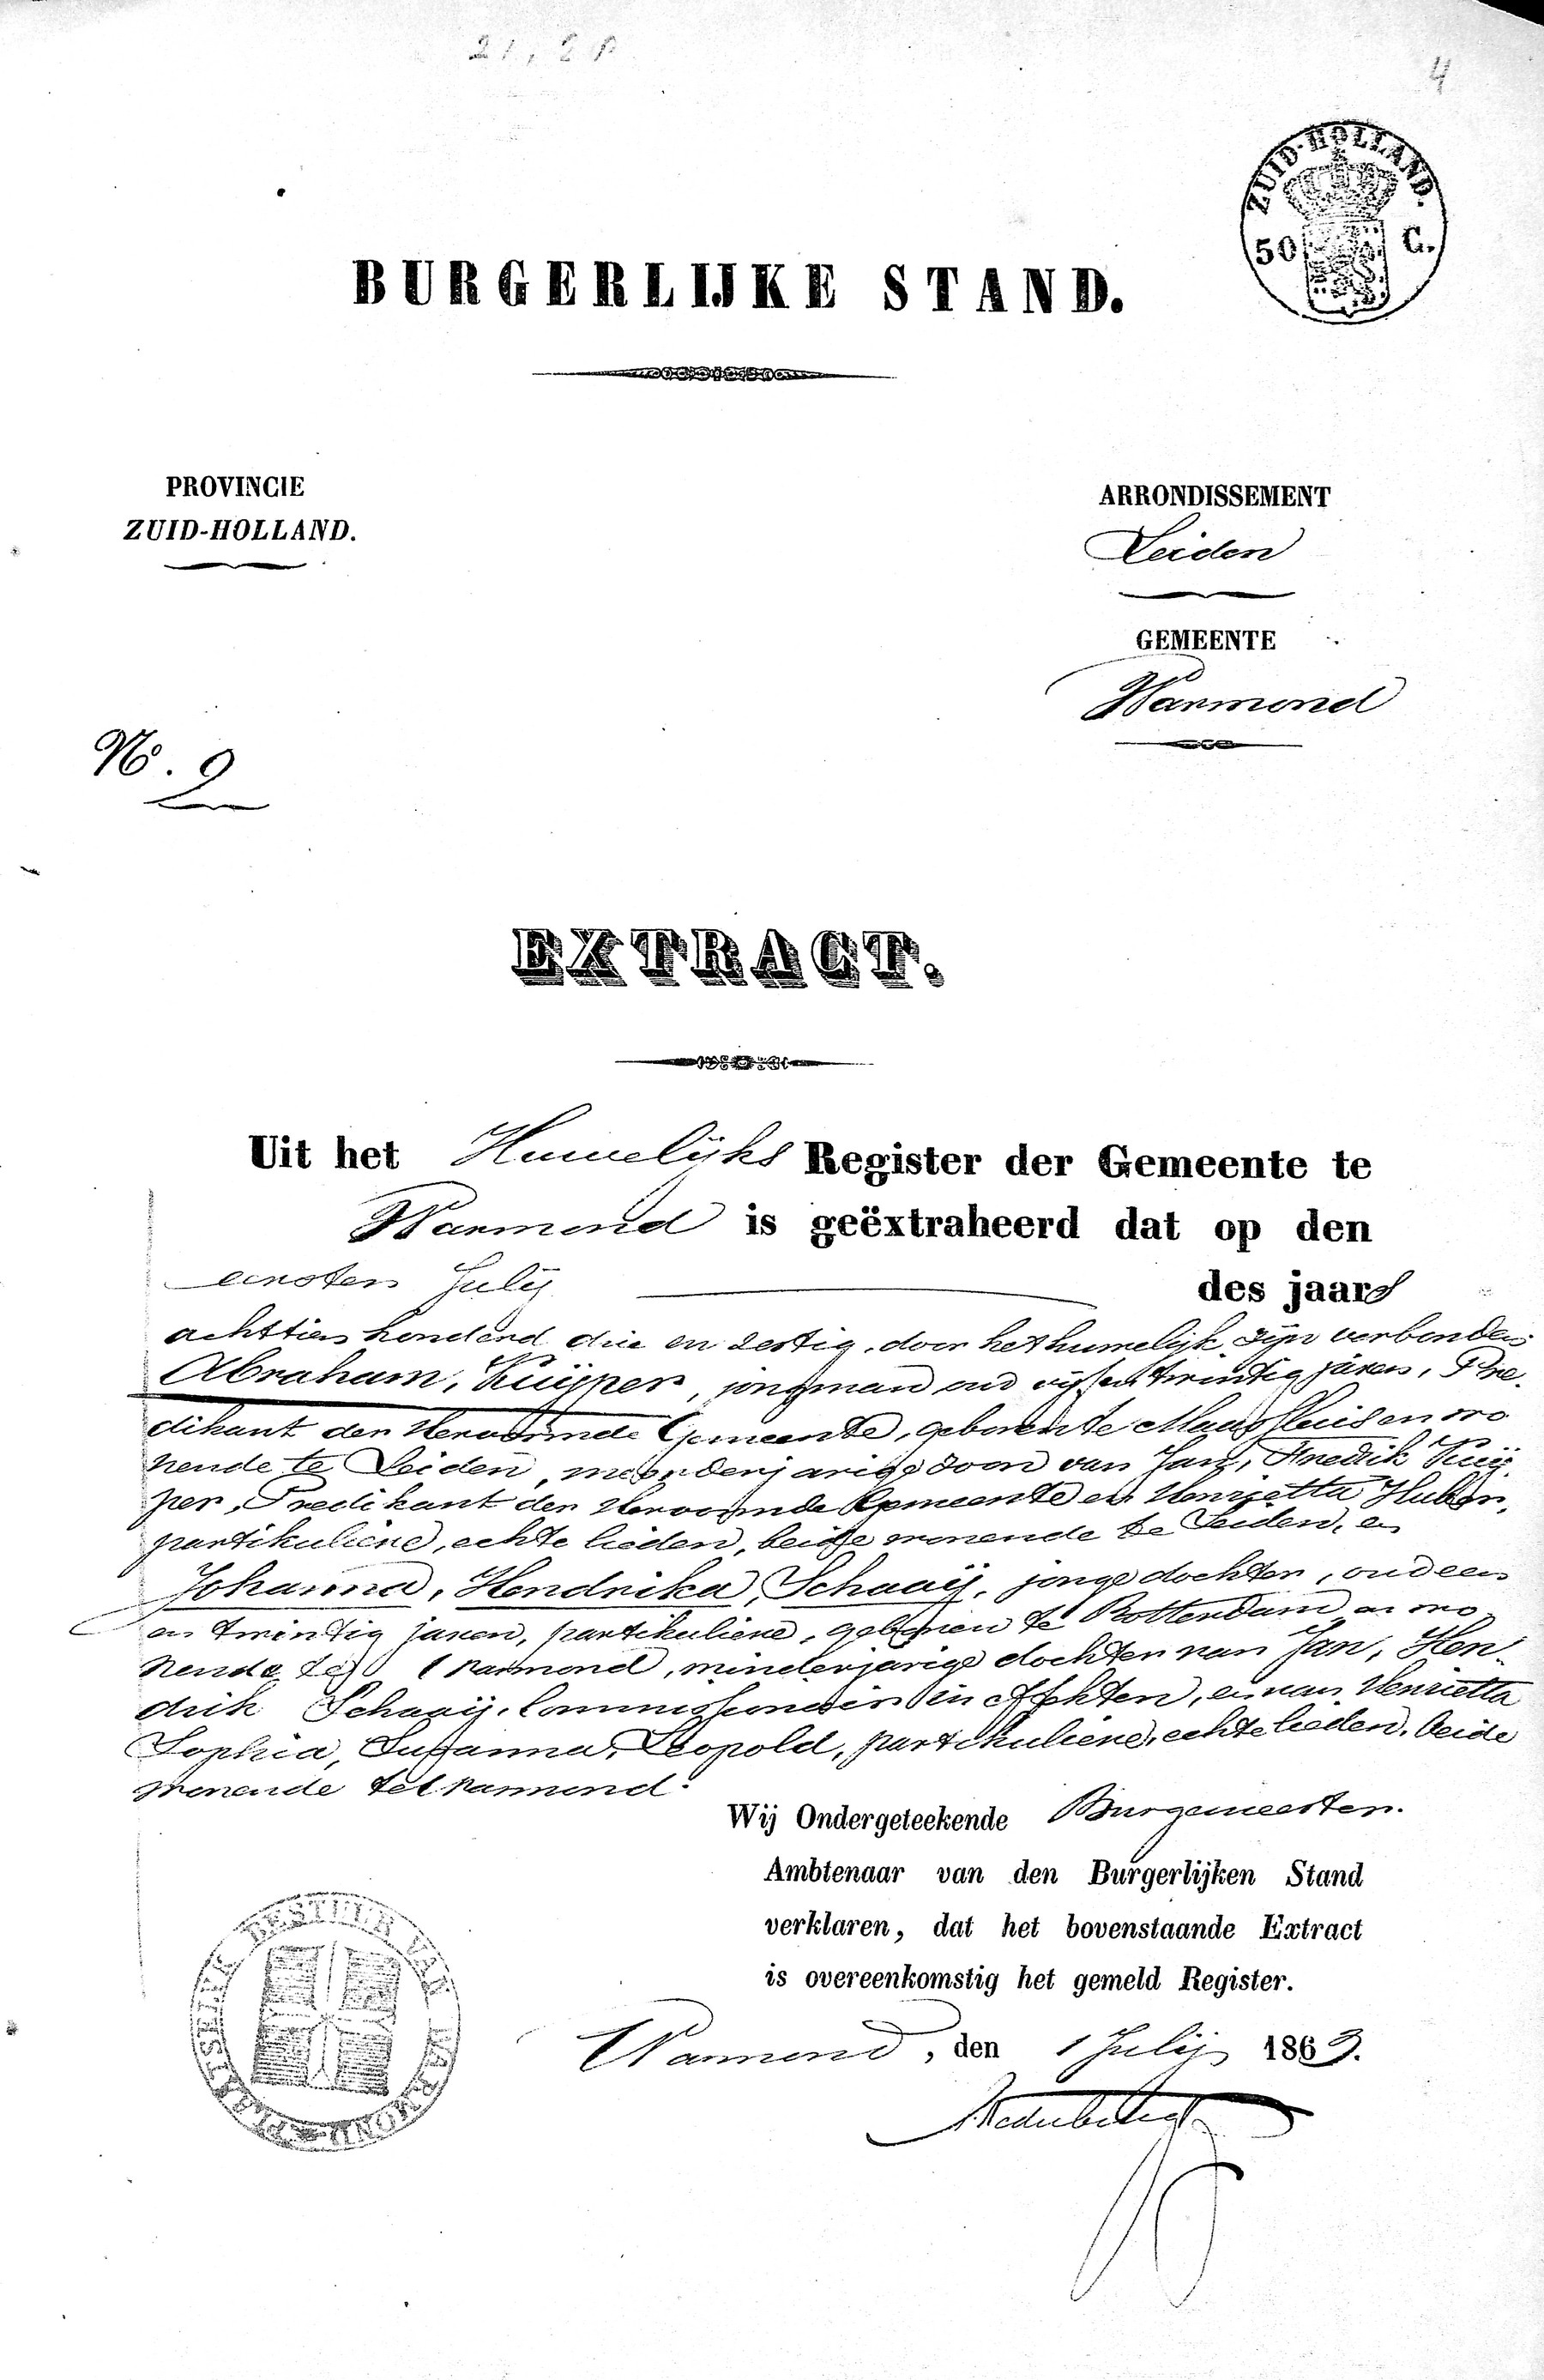 4
ZUID-HOLLAND.
50 C.
BURGERLIJKE STAND.
PROVINCIE
ZUID-HOLLAND.
ARRONDISSEMENT
Leiden
GEMEENTE
Warmond
No. 2
EXTRACT.
Uit het Huwelijks Register der Gemeente te
Warmond is geëxtraheerd dat op den
eersten Julij des jaars
achttien honderd drie en zestig, door het huwelijk zijn verbonden
Abraham, Kuijper, jongman oud vijf en twintig jaren, Pre-
dikant der Hervormde Gemeente, geboren te Maassluis en wo
nende te Leiden, meerderjarige zoon van Jan, Fredrik Kuij-
per, Predikant der Hervormde Gemeente en Henrietta Huber,
partikuliere, echte lieden, beide wonende te Leiden, en
Johanna, Hendrika, Schaaij, jonge dochter, oud een
en twintig jaren, partikuliere, geboren te Rotterdam en wo
nende te Warmond, minderjarige dochter van Jan, Hen-
drik Schaaij, Commissionair in Effekten, en van Henrietta
Sophia, Susanna, Leopold, partikuliere, echte lieden, beide
wonende te Warmond.
Wij Ondergeteekende Burgemeester.
Ambtenaar van den Burgerlijken Stand
verklaren, dat het bovenstaande Extract
is overeenkomstig het gemeld Register.
PLAATSELIJK BESTUUR VAN WARMOND
Warmond, den 1 Julij 1863.